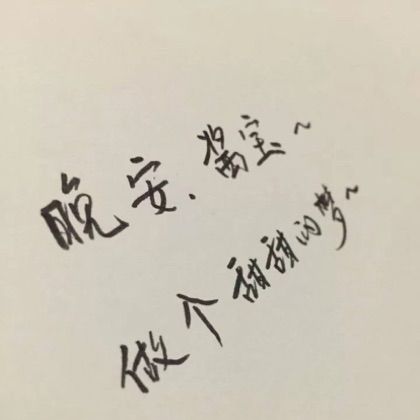 晚安、酱宝~
做个甜甜的梦~